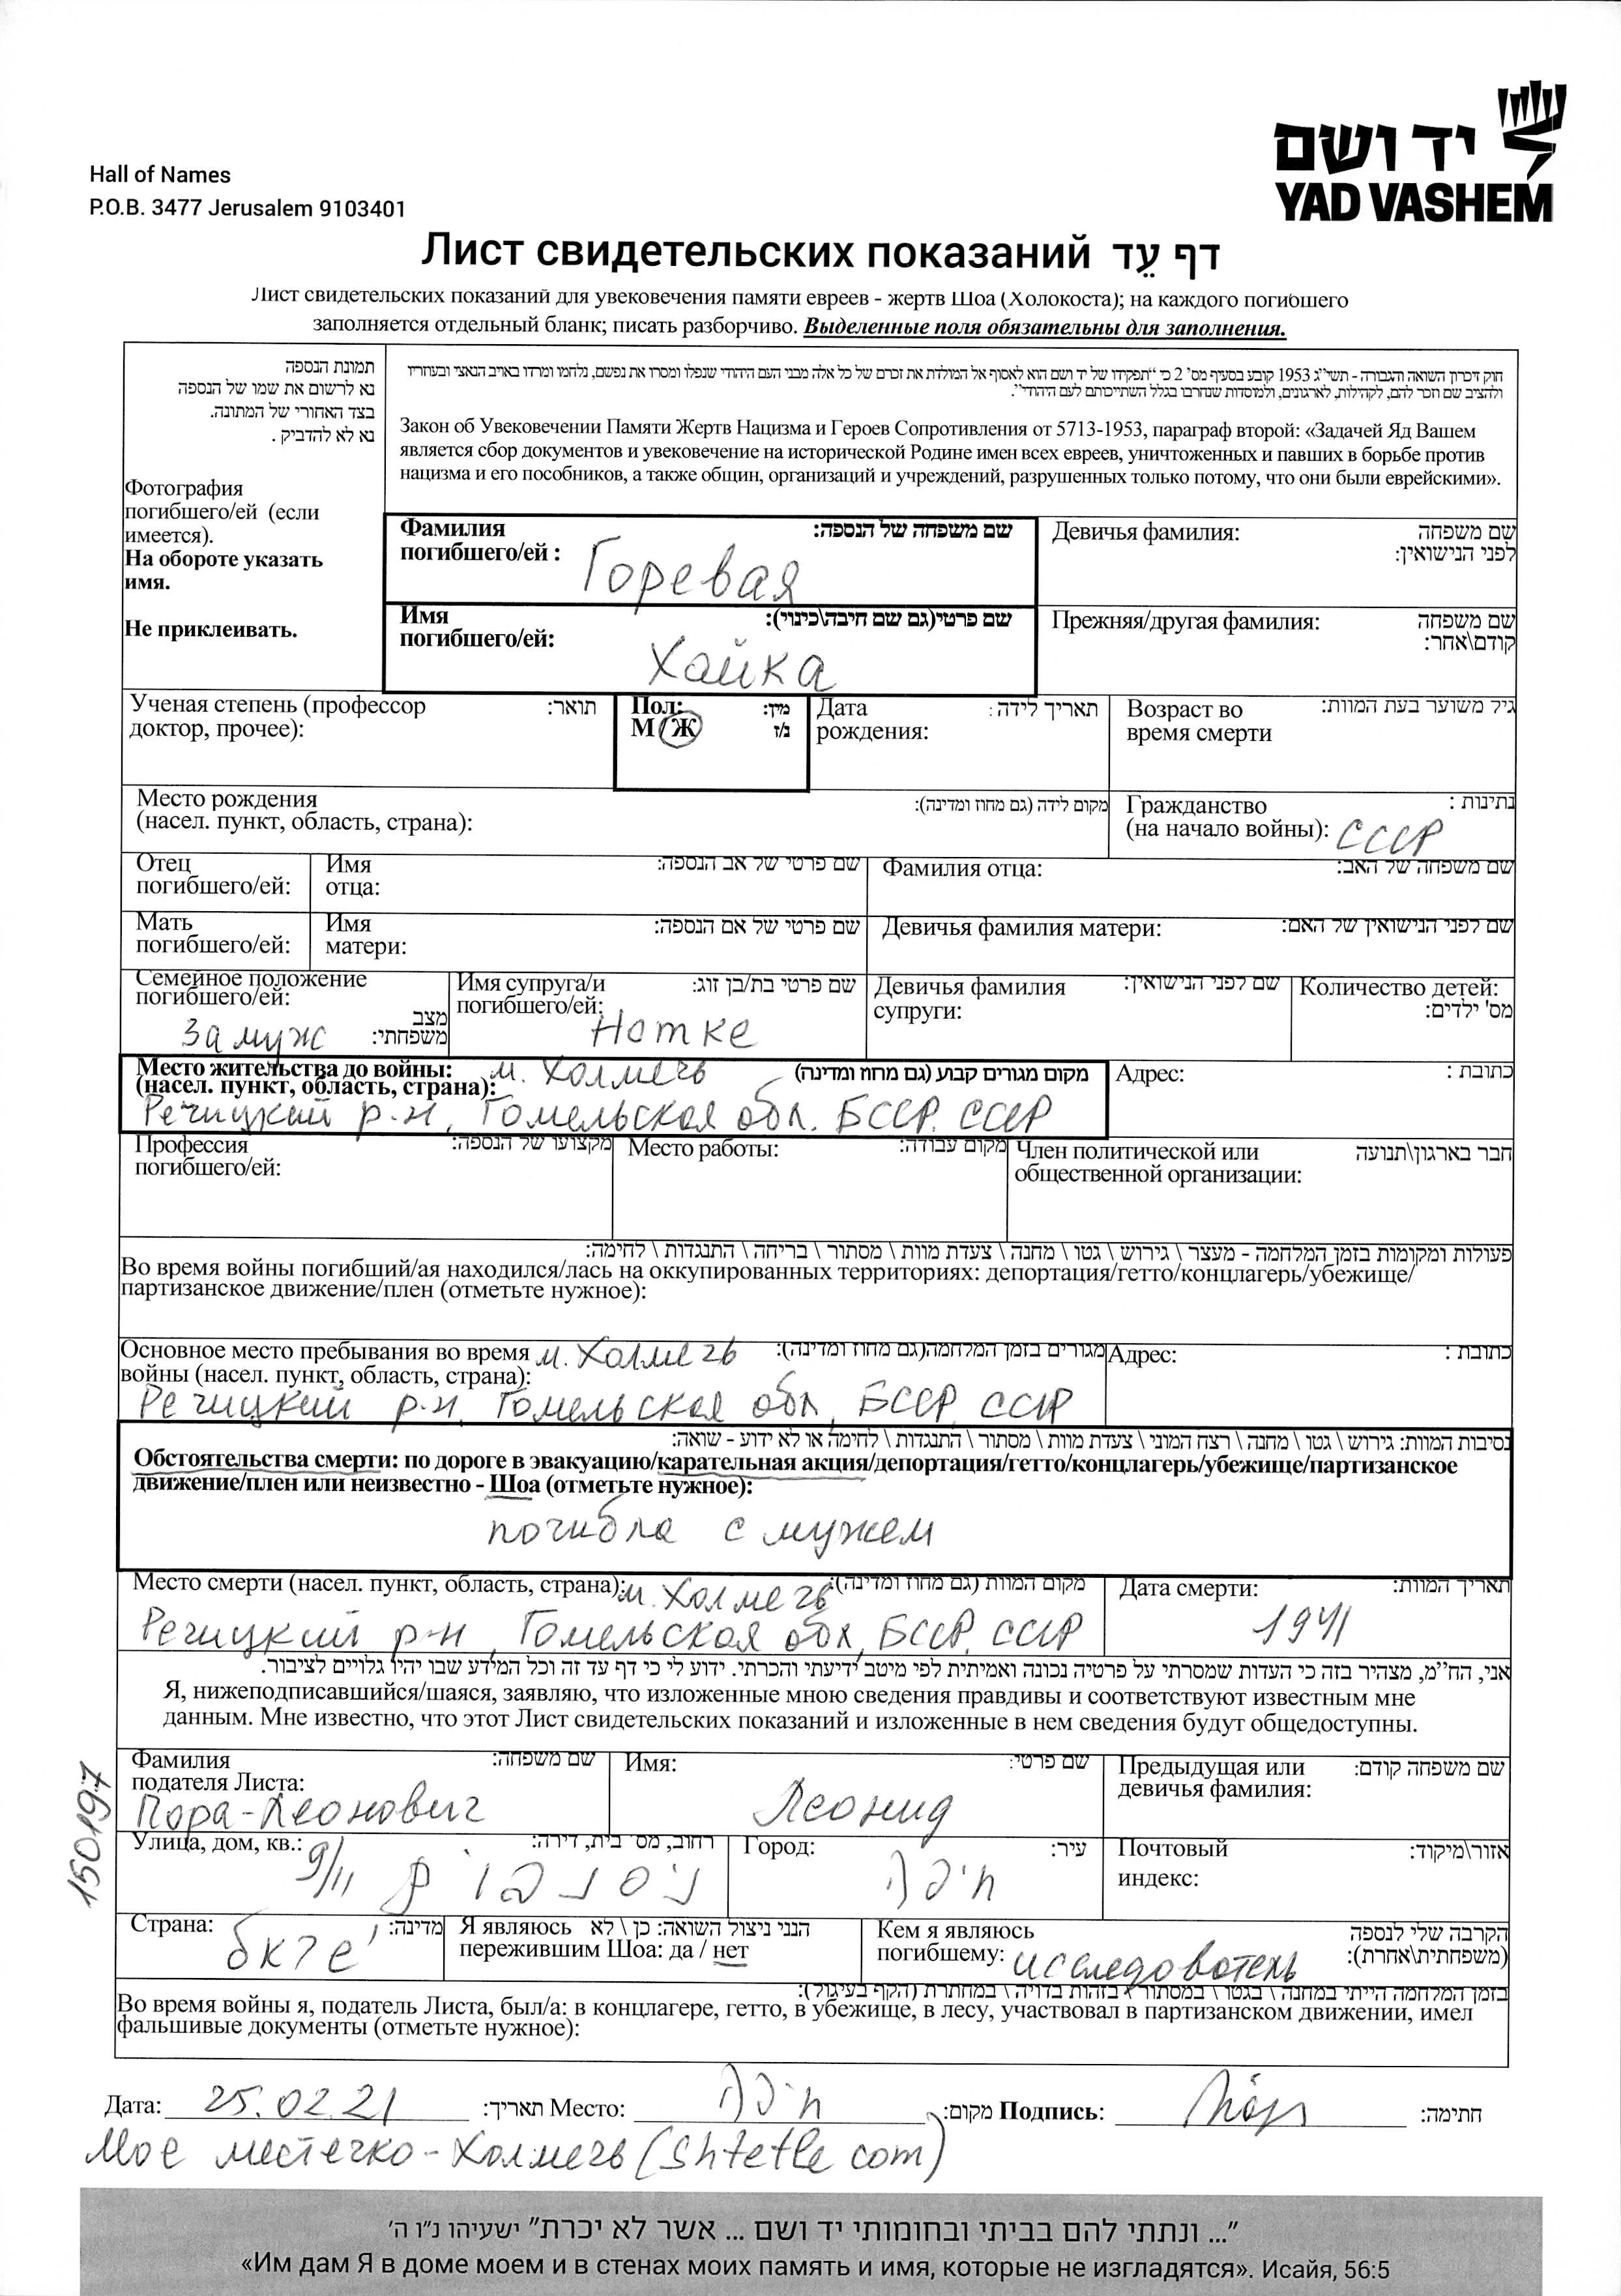 יד ושם
YAD VASHEM
Hall of Names
P.O.B. 3477 Jerusalem 9103401
Лист свидетельских показаний דף עֵד
Лист свидетельских показаний для увековечения памяти евреев - жертв Шоа (Холокоста); на каждого погибшего
заполняется отдельный бланк; писать разборчиво. Выделенные поля обязательны для заполнения.
תמונת הנספה
נא לרשום את שמו של הנספה
בצד האחורי של המתונה.
נא לא להדביק .
Фотография
погибшего/ей (если
имеется).
На обороте указать
имя.
Не приклеивать.
חוק זיכרון השואה והגבורה - תשי״ג 1953 קובע בסעיף מס׳ 2 כי ״תפקידו של יד ושם הוא לאסוף אל המולדת את זכרם של כל אלה מבני העם היהודי שנפלו ומסרו את נפשם, נלחמו ומרדו באויב הנאצי ובעוזריו
ולהציב שם וזכר להם, לקהילות, לארגונים, ולמוסדות שנחרבו בגלל השתייכותם לעם היהודי״.
Закон об Увековечении Памяти Жертв Нацизма и Героев Сопротивления от 5713-1953, параграф второй: «Задачей Яд Вашем
является сбор документов и увековечение на исторической Родине имен всех евреев, уничтоженных и павших в борьбе против
нацизма и его пособников, а также общин, организаций и учреждений, разрушенных только потому, что они были еврейскими».
Фамилия שם משפחה של הנספה:
погибшего/ей : Горевая
Девичья фамилия: שם משפחה
לפני הנישואין:
Имя שם פרטי(גם שם חיבה\כינוי):
погибшего/ей: Хайка
Прежняя/другая фамилия: שם משפחה
קודם\אחר:
Ученая степень (профессор תואר:
доктор, прочее):
Пол: מין:
М Ж ז/נ
Дата תאריך לידה :
рождения:
Возраст во גיל משוער בעת המוות:
время смерти
Место рождения מקום לידה (גם מחוז ומדינה):
(насел. пункт, область, страна):
Гражданство נתינות :
(на начало войны): СССР
Отец
погибшего/ей:
Имя שם פרטי של אב הנספה:
отца:
Фамилия отца: שם משפחה של האב:
Мать
погибшего/ей:
Имя שם פרטי של אם הנספה:
матери:
Девичья фамилия матери: שם לפני הנישואין של האם:
Семейное положение
погибшего/ей: מצב
замуж משפחתי:
Имя супруга/и שם פרטי בת/בן זוג:
погибшего/ей:
Нотке
Девичья фамилия שם לפני הנישואין:
супруги:
Количество детей:
מס' ילדים:
Место жительства до войны: м. Холмечь מקום מגורים קבוע (גם מחוז ומדינה)
(насел. пункт, область, страна):
Речицкий р-н, Гомельская обл. БССР. СССР
Адрес: כתובת :
Профессия מקצועו של הנספה:
погибшего/ей:
Место работы: מקום עבודה:
Член политической или חבר בארגון\תנועה
общественной организации:
פעולות ומקומות בזמן המלחמה - מעצר \ גירוש \ גטו \ מחנה \ צעדת מוות \ מסתור \ בריחה \ התנגדות \ לחימה:
Во время войны погибший/ая находился/лась на оккупированных территориях: депортация/гетто/концлагерь/убежище/
партизанское движение/плен (отметьте нужное):
Основное место пребывания во время м. Холмечь מגורים בזמן המלחמה(גם מחוז ומדינה):
войны (насел. пункт, область, страна):
Речицкий р-н, Гомельская обл, БССР, СССР
Адрес: כתובת :
נסיבות המוות: גירוש \ גטו \ מחנה \ רצח המוני \ צעדת מוות \ מסתור \ התנגדות \ לחימה או לא ידוע - שואה:
Обстоятельства смерти: по дороге в эвакуацию/карательная акция/депортация/гетто/концлагерь/убежище/партизанское
движение/плен или неизвестно - Шоа (отметьте нужное):
погибла с мужем
Место смерти (насел. пункт, область, страна): м. Холмечь מקום המוות (גם מחוז ומדינה):
Речицкий р-н, Гомельская обл, БССР, СССР
Дата смерти: תאריך המוות:
1941
אני, הח״מ, מצהיר בזה כי העדות שמסרתי על פרטיה נכונה ואמיתית לפי מיטב ידיעתי והכרתי. ידוע לי כי דף עד זה וכל המידע שבו יהיו גלויים לציבור.
Я, нижеподписавшийся/шаяся, заявляю, что изложенные мною сведения правдивы и соответствуют известным мне
данным. Мне известно, что этот Лист свидетельских показаний и изложенные в нем сведения будут общедоступны.
150197
Фамилия שם משפחה:
подателя Листа:
Пора-Леонович
Имя: שם פרטי:
Леонид
Предыдущая или שם משפחה קודם:
девичья фамилия:
Улица, дом, кв.: רחוב, מס' בית, דירה:
9/11
Город: עיר:
חיפה
Почтовый אזור\מיקוד:
индекс:
Страна: מדינה:
Я являюсь הנני ניצול השואה: כן \ לא
пережившим Шоа: да / нет
Кем я являюсь הקרבה שלי לנספה
погибшему: исследователь (משפחתית\אחרת):
בזמן המלחמה הייתי במחנה \ בגטו \ במסתור \ בזהות בדויה \ במחתרת (הקף בעיגול):
Во время войны я, податель Листа, был/а: в концлагере, гетто, в убежище, в лесу, участвовал в партизанском движении, имел
фальшивые документы (отметьте нужное):
Дата: 25.02.21 תאריך: Место: חיפה מקום: Подпись: חתימה:
Мое местечко-Холмечь (Shtetle com)
״... ונתתי להם בביתי ובחומותי יד ושם ... אשר לא יכרת״ ישעיהו נ״ו ה׳
«Им дам Я в доме моем и в стенах моих память и имя, которые не изгладятся». Исайя, 56:5